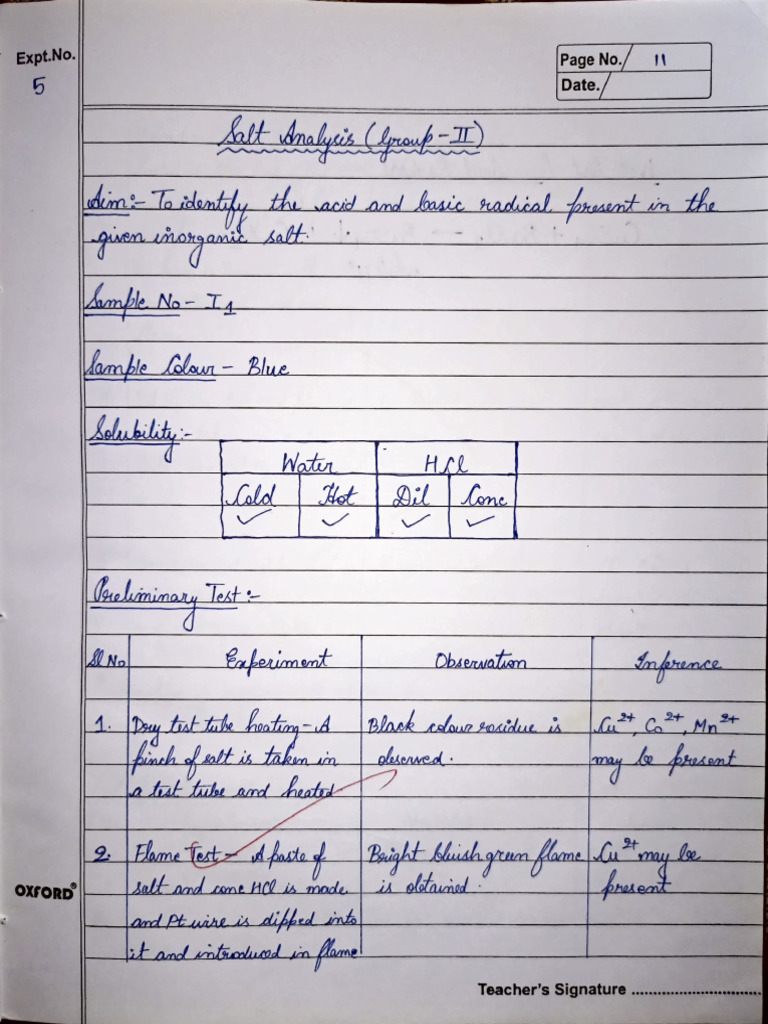 Expt.No.
5
Page No. 11
Date.
Salt Analysis (Group-II)
Aim:- To identify the acid and basic radical present in the
given inorganic salt.
Sample No - I1
Sample Colour - Blue
Solubility:-
Water HCl
Cold Hot Dil Conc
✓ ✓ ✓ ✓
Preliminary Test:-
Sl No Experiment Observation Inference
1. Dry test tube heating - A Black colour residue is Cu²⁺, Co²⁺, Mn²⁺
pinch of salt is taken in observed. may be present
a test tube and heated
2. Flame Test - A paste of Bright bluish green flame Cu²⁺ may be
salt and conc HCl is made is obtained. present
and Pt wire is dipped into
it and introduced in flame
OXFORD®
Teacher's Signature ..............................